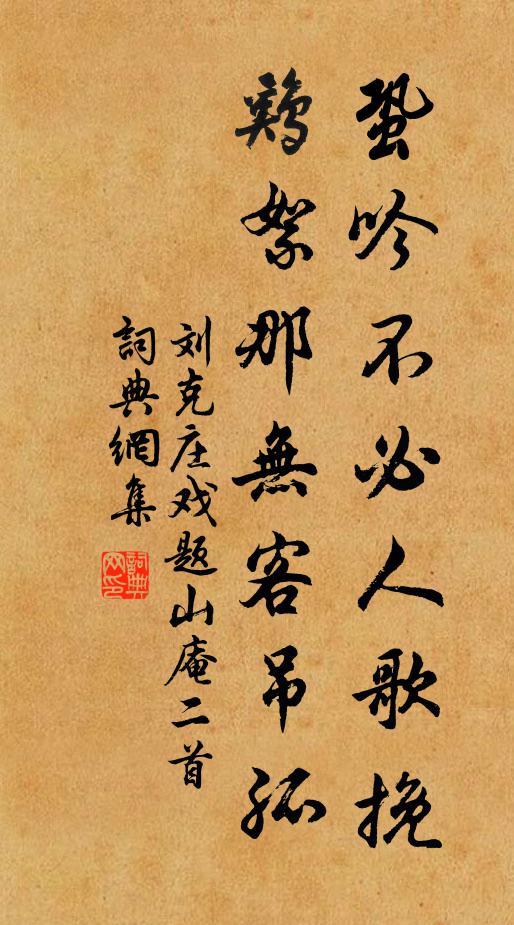 蛩吟不必人歌挽
鷄絮那無客吊孤
刘克庄戏题山庵二首
詞典網集
詞典网印